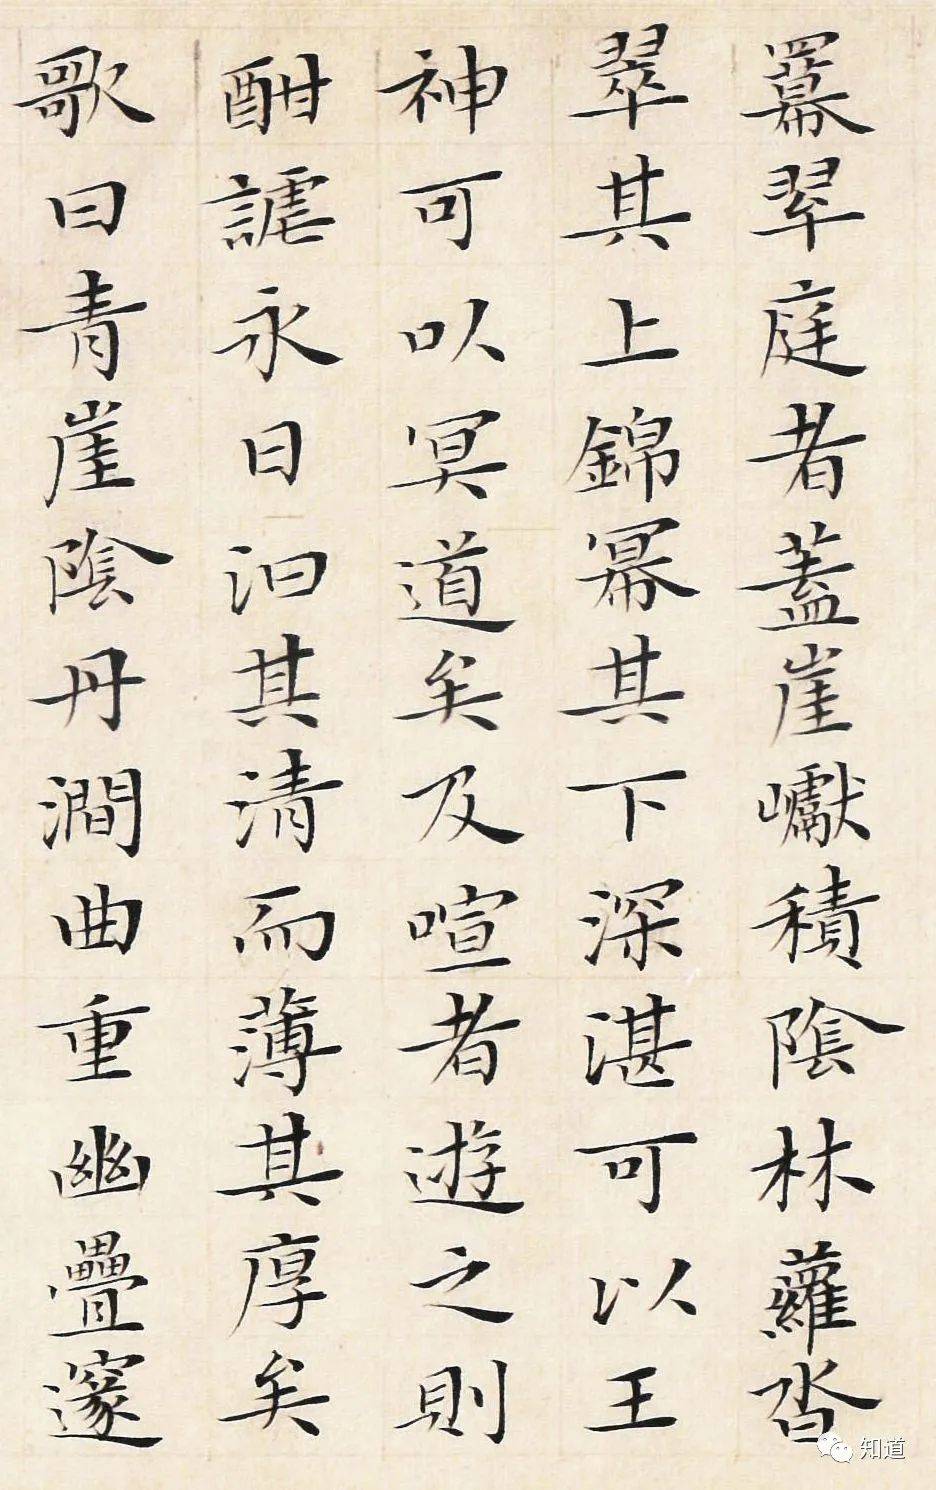 羃翆庭者蓋崖巘積陰林蘿沓
翠其上錦幂其下深湛可以王
神可以冥道矣及喧者遊之則
酣謔永日汩其清而薄其厚矣
歌曰青崖陰丹澗曲重幽疊邃
知道